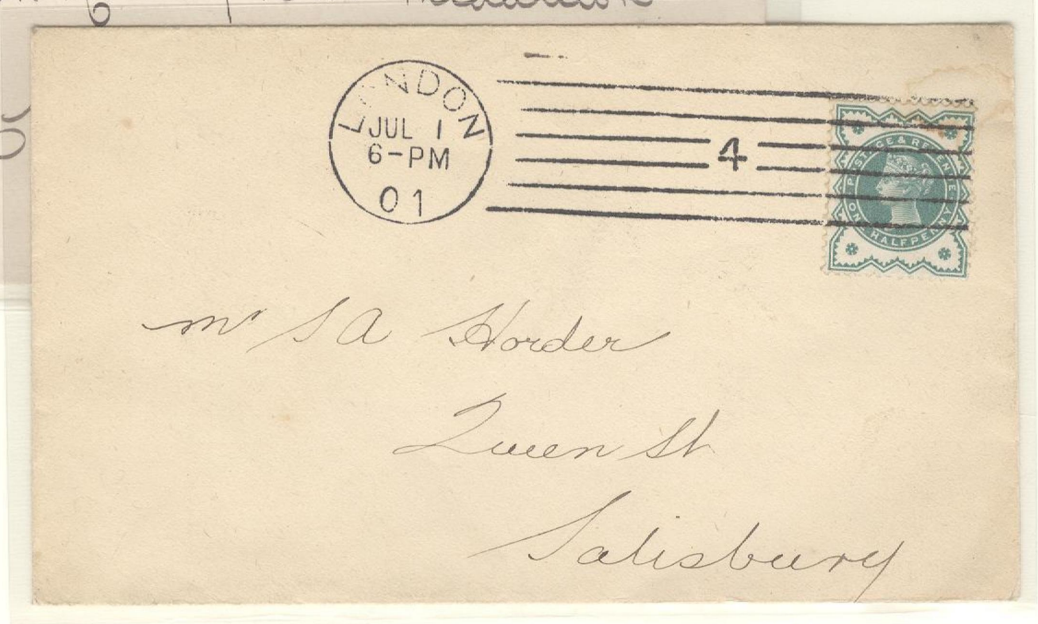 LONDON
JUL 1
6-PM
01
4
POSTAGE & REVENUE
ONE HALFPENNY
Mr S A Horder
Queen St
Salisbury